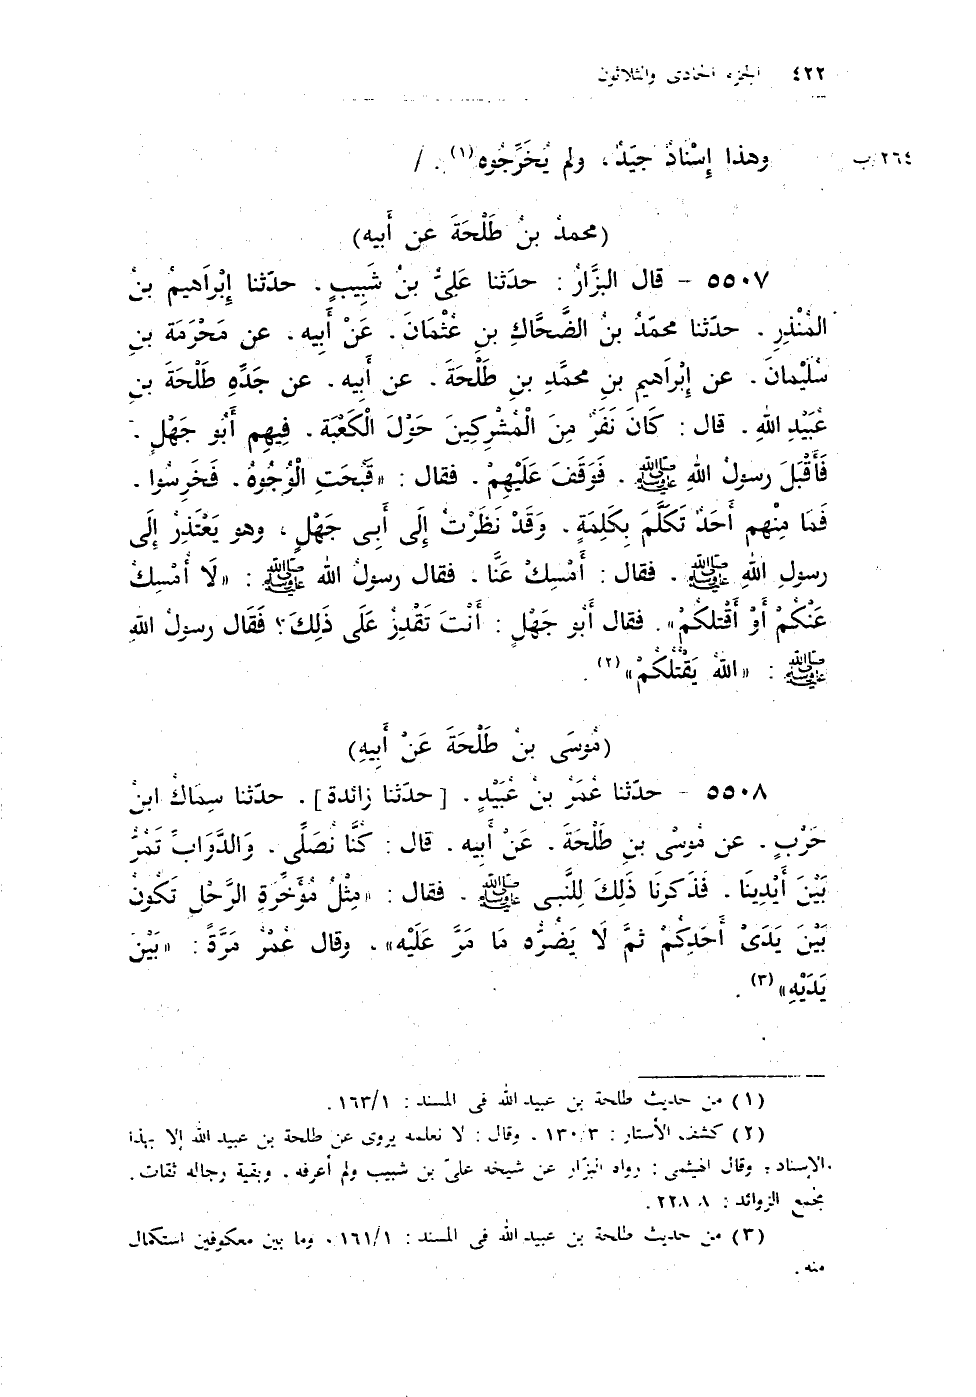 ٤٢٢ الجزء الحادى والثلاثون
٢٦٤/ب وهذا إِسْنادٌ جيّدٌ، ولم يُخَرِّجُوه(١). /
(محمدُ بنُ طَلْحَةَ عن أَبيه)
٥٥٠٧ - قال البزَّارُ: حدّثنا عَلِىُّ بنُ شَبِيبٍ. حدّثنا إِبْرَاهيمُ بنُ
المُنْذِرِ. حدّثنا محمّدُ بنُ الضَّحَّاكِ بنِ عُثْمَانَ. عَنْ أَبيه. عن مَخْرَمَة بنِ
سُلَيْمانَ. عن إبْراهيم بنِ محمَّدِ بنِ طَلْحَةَ. عن أَبيه. عن جَدِّهِ طَلْحَةَ بنِ
عُبَيْدِ اللهِ. قال: كَانَ نَفَرٌ مِنَ الْمُشْرِكِينَ حَوْلَ الْكَعْبَة. فِيهِم أَبُو جَهْلٍ.
فَأَقْبَلَ رسولُ اللهِ ﷺ. فَوَقَفَ عَلَيْهِمْ. فقال: «قَبُحَتِ الْوُجُوهُ. فَخَرِسُوا.
فَمَا مِنْهم أَحَدٌ تَكَلَّمَ بِكَلِمَةٍ. وَقَدْ نَظَرْتُ إلَى أَبى جَهْلٍ، وهو يَعْتَذِرُ إلَى
رسولِ اللهِ ﷺ. فقال: أَمْسِكْ عَنَّا. فقال رسولُ الله ﷺ: «لَا أُمْسِكُ
عَنْكُمْ أَوْ أَقْتلكُمْ». فقال أَبو جَهْلٍ: أَنْتَ تَقْدِرُ عَلَى ذَلِكَ؟ فَقَال رسولُ اللهِ
ﷺ: «اللهُ يَقْتُلُكُمْ»(٢).
(مُوسَى بنُ طَلْحَةَ عَنْ أَبِيهِ)
٥٥٠٨ - حدّثنا عُمَرُ بنُ عُبَيْدٍ. [حدّثنا زائدة]. حدّثنا سِمَاكُ ابنُ
حَرْبٍ. عن مُوسْى بنِ طَلْحَةَ. عَنْ أَبيه. قال: كُنَّا نُصَلِّى. وَالدَّوَابُّ تَمُرُّ
بَيْنَ أَيْدِينَا. فَذَكرنَا ذَلِكَ لِلنَّبى ﷺ. فقال: «مِثْلُ مُؤَخِّرَةِ الرَّحْلِ تَكُونُ
بَيْنَ يَدَىْ أَحَدِكُمْ ثمَّ لَا يَضُرُّه مَا مَرَّ عَلَيْه». وقال عُمَرُ مَرَّةً: «بَيْنَ
يَدَيْهِ»(٣).
(١) من حديث طلحة بن عبيد الله فى المسند: ١٦٣/١.
(٢) كشف الأستار: ١٣٠/٣. وقال: لا نعلمه يروى عن طلحة بن عبيد الله إلا بهذا
الإسناد؛ وقال الهيثمى: رواه البزّار عن شيخه علىّ بن شبيب ولم أعرفه. وبقية رجاله ثقات.
مجمع الزوائد: ٢٢٨/٨.
(٣) من حديث طلحة بن عبيد الله فى المسند: ١٦١/١. وما بين معكوفين استكمال
منه.